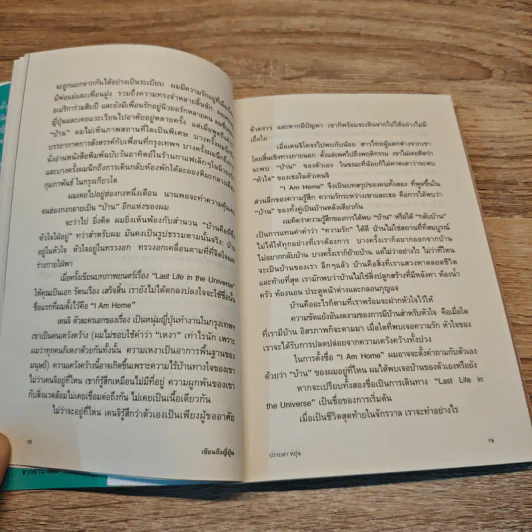 จะถูกแยกจากกันได้อย่างเป็นระเบียบ ผมมีความรักอยู่ที่
มีพ่อแม่และเพื่อนฝูง รวมถึงความทรงจำหลายสิบชีก
อเมริการ่วมสิบปี และยังมีเพื่อนรักอยู่นิวยอร์ก
ญี่ปุ่นและเคยแวะเวียนไปอาศัยอยู่หลายครั้ง แต่เมื่อพูดถึง
“บ้าน” ผมไม่เห็นภาพสถานที่ใดเป็นพิเศษ บางครั้ง
บรรยากาศการสังสรรค์กับเพื่อนที่กรุงเทพฯ บางครั้งผมนึกถึง
นั่งอ่านหนังสือพิมพ์ฉบับวันอาทิตย์ในร้านกาแฟเล็กๆ ในนิวยอร์ก
และบางครั้งผมนึกถึงการเดินกลับห้องพักใต้ละอองหิมะกลางเดือน
กุมภาพันธ์ ในกรุงเกียวโต
ผมเคยไปอยู่ฮ่องกงหนึ่งเดือน นานพอจะทำความคุ้นเคย
จนฮ่องกงกลายเป็น “บ้าน” อีกแห่งของผม
จะว่าไป ยิ่งคิด ผมยิ่งเห็นพ้องกับสำนวน “บ้านคือที่ที่
หัวใจไม่อยู่” ทว่าสำหรับผม มันคงเป็นรูปธรรมตามนั้นจริงๆ บ้าน
อยู่ในหัวใจ หัวใจอยู่ในทรวงอก ทรวงอกเคลื่อนตามที่ที่จิตใจและ
ร่างกายไฝ่หา
เมื่อครั้งเขียนบทภาพยนตร์เรื่อง “Last Life in the Universe”
ให้คุณเป็นเอก รัตนเรือง เสร็จสิ้น เรายังไม่ได้ตกลงปลงใจจะใช้ชื่อนั้น
ชื่อแรกที่ผมตั้งไว้คือ “I Am Home”
เคนจิ ตัวละครเอกของเรื่อง เป็นหนุ่มญี่ปุ่นทำงานในกรุงเทพฯ
เขาเป็นคนเคว้งคว้าง (ผมไม่ชอบใช้คำว่า “เหงา” เท่าไรนัก เพราะ
ผมว่าทุกคนก็เหงาด้วยกันทั้งนั้น ความเหงาเป็นอาการพื้นฐานของ
มนุษย์) ความเคว้งคว้างนี้อาจเกิดขึ้นเพราะความไร้บ้านทางใจของเขา
ไม่ว่าเคนจิอยู่ที่ไหน เขาก็รู้สึกเหมือนไม่มีที่อยู่ ความผูกพันของเขา
กับสิ่งแวดล้อมไม่เคยเชื่อมต่อถึงกัน ไม่เคยเป็นเนื้อเดียวกัน
ไม่ว่าจะอยู่ที่ไหน เคนจิรู้สึกว่าตัวเองเป็นเพียงผู้ขออาศัย
18
เขียนถึงญี่ปุ่น
ชั่วคราว และหากมีปัญหา เขาก็พร้อมจะเดินจากไปได้อย่างไม่มี
เยื่อใย
เมื่อเคนจิโคจรไปพบกับน้อย สาวไทยผู้แตกต่างจากเขา
โดยสิ้นเชิงทางกายนอก ตั้งแต่เพศไปถึงพฤติกรรม เขาไม่เคยคิดว่า
จะพบ “บ้าน” ของตัวเอง ในขณะที่น้อยก็ไม่คาดเดาว่าจะพบ
“หัวใจ” ของเธอในตัวเคนจิ
“I Am Home” จึงเป็นบทสรุปของคนทั้งสอง ที่พูดขึ้นใน
ส่วนลึกของความรู้สึก ความรักระหว่างเขากับเธอ คือการได้พบว่า
“บ้าน” ของทั้งคู่เป็นบ้านหลังเดียวกัน
ผมคิดว่าความรู้สึกของการได้พบ “บ้าน” หรือได้ “กลับบ้าน”
เป็นการแทนค่าคำว่า “ความรัก” ได้ดี บ้านไม่ใช่สถานที่ที่สมบูรณ์
ไม่ได้ให้ทุกอย่างที่เราต้องการ บางครั้งเราก็อยากออกจากบ้าน
ไม่อยากกลับบ้าน บางครั้งเราก็ย้ายบ้าน แต่ไม่ว่าอย่างไร ไม่ว่าที่ไหน
จะเป็นบ้านของเรา ลึกๆ แล้ว บ้านคือสิ่งที่เราแสวงหาตลอดชีวิต
และท้ายที่สุด เรามักพบว่าบ้านไม่ใช่สิ่งปลูกสร้างที่มีหลังคา ห้องน้ำ
ครัว ห้องนอน ประตูหน้าต่างและกลอนกุญแจ
บ้านคืออะไรก็ตามที่เราพร้อมจะฝากหัวใจไว้ให้
ความขัดแย้งอันงดงามของการมีบ้านสำหรับหัวใจ คือเมื่อใด
ที่เรามีบ้าน อิสรภาพก็จะตามมา เมื่อใดที่พบเจอความรัก หัวใจของ
เราจะได้รับการปลดปล่อยจากความเคว้งคว้างทั้งปวง
ในการตั้งชื่อ “I Am Home” ผมอาจจะตั้งคำถามกับตัวเอง
ด้วยว่า “บ้าน” ของผมอยู่ที่ไหน ผมได้พบเจอบ้านของตัวเองหรือยัง
หากจะเปรียบทั้งสองชื่อเป็นการเดินทาง “Last Life in
the Universe” เป็นชื่อของการเริ่มต้น
เมื่อเป็นชีวิตสุดท้ายในจักรวาล เราจะทำอย่างไร
ปราบดา หยุ่น
19